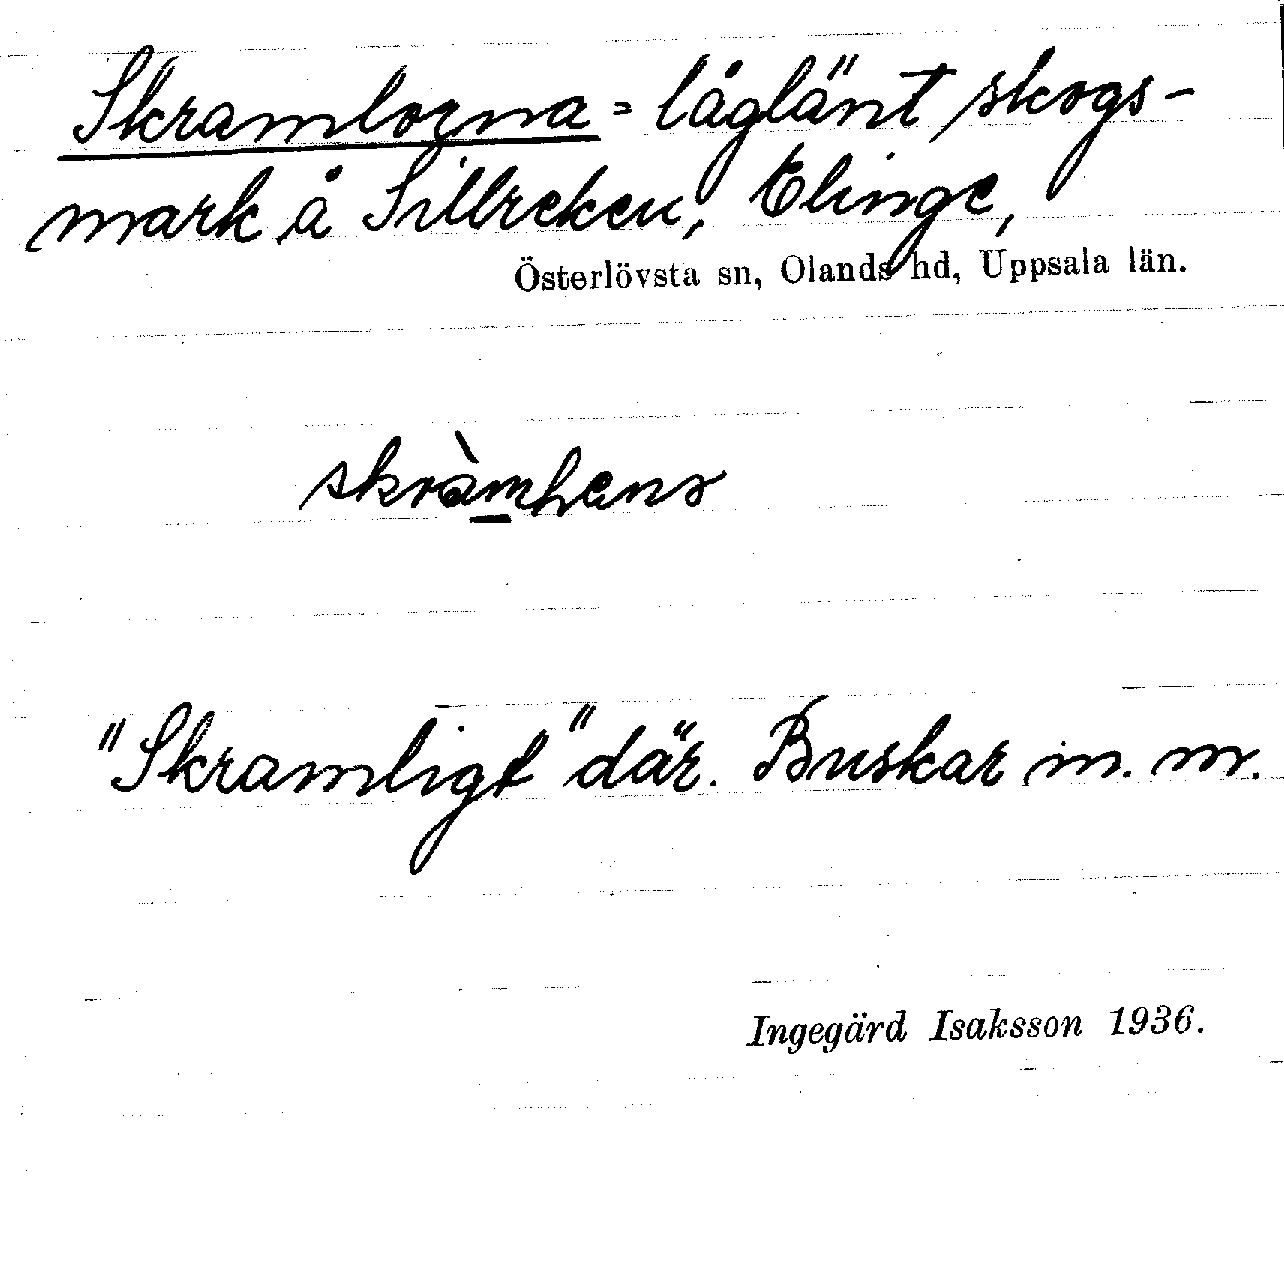 Skramlorna = låglänt skogs-
mark å Sillreken, Elinge,
Österlövsta sn, Olands hd, Uppsala län.
"Skramligt" där. Buskar m. m.
Ingegärd Isaksson 1936.